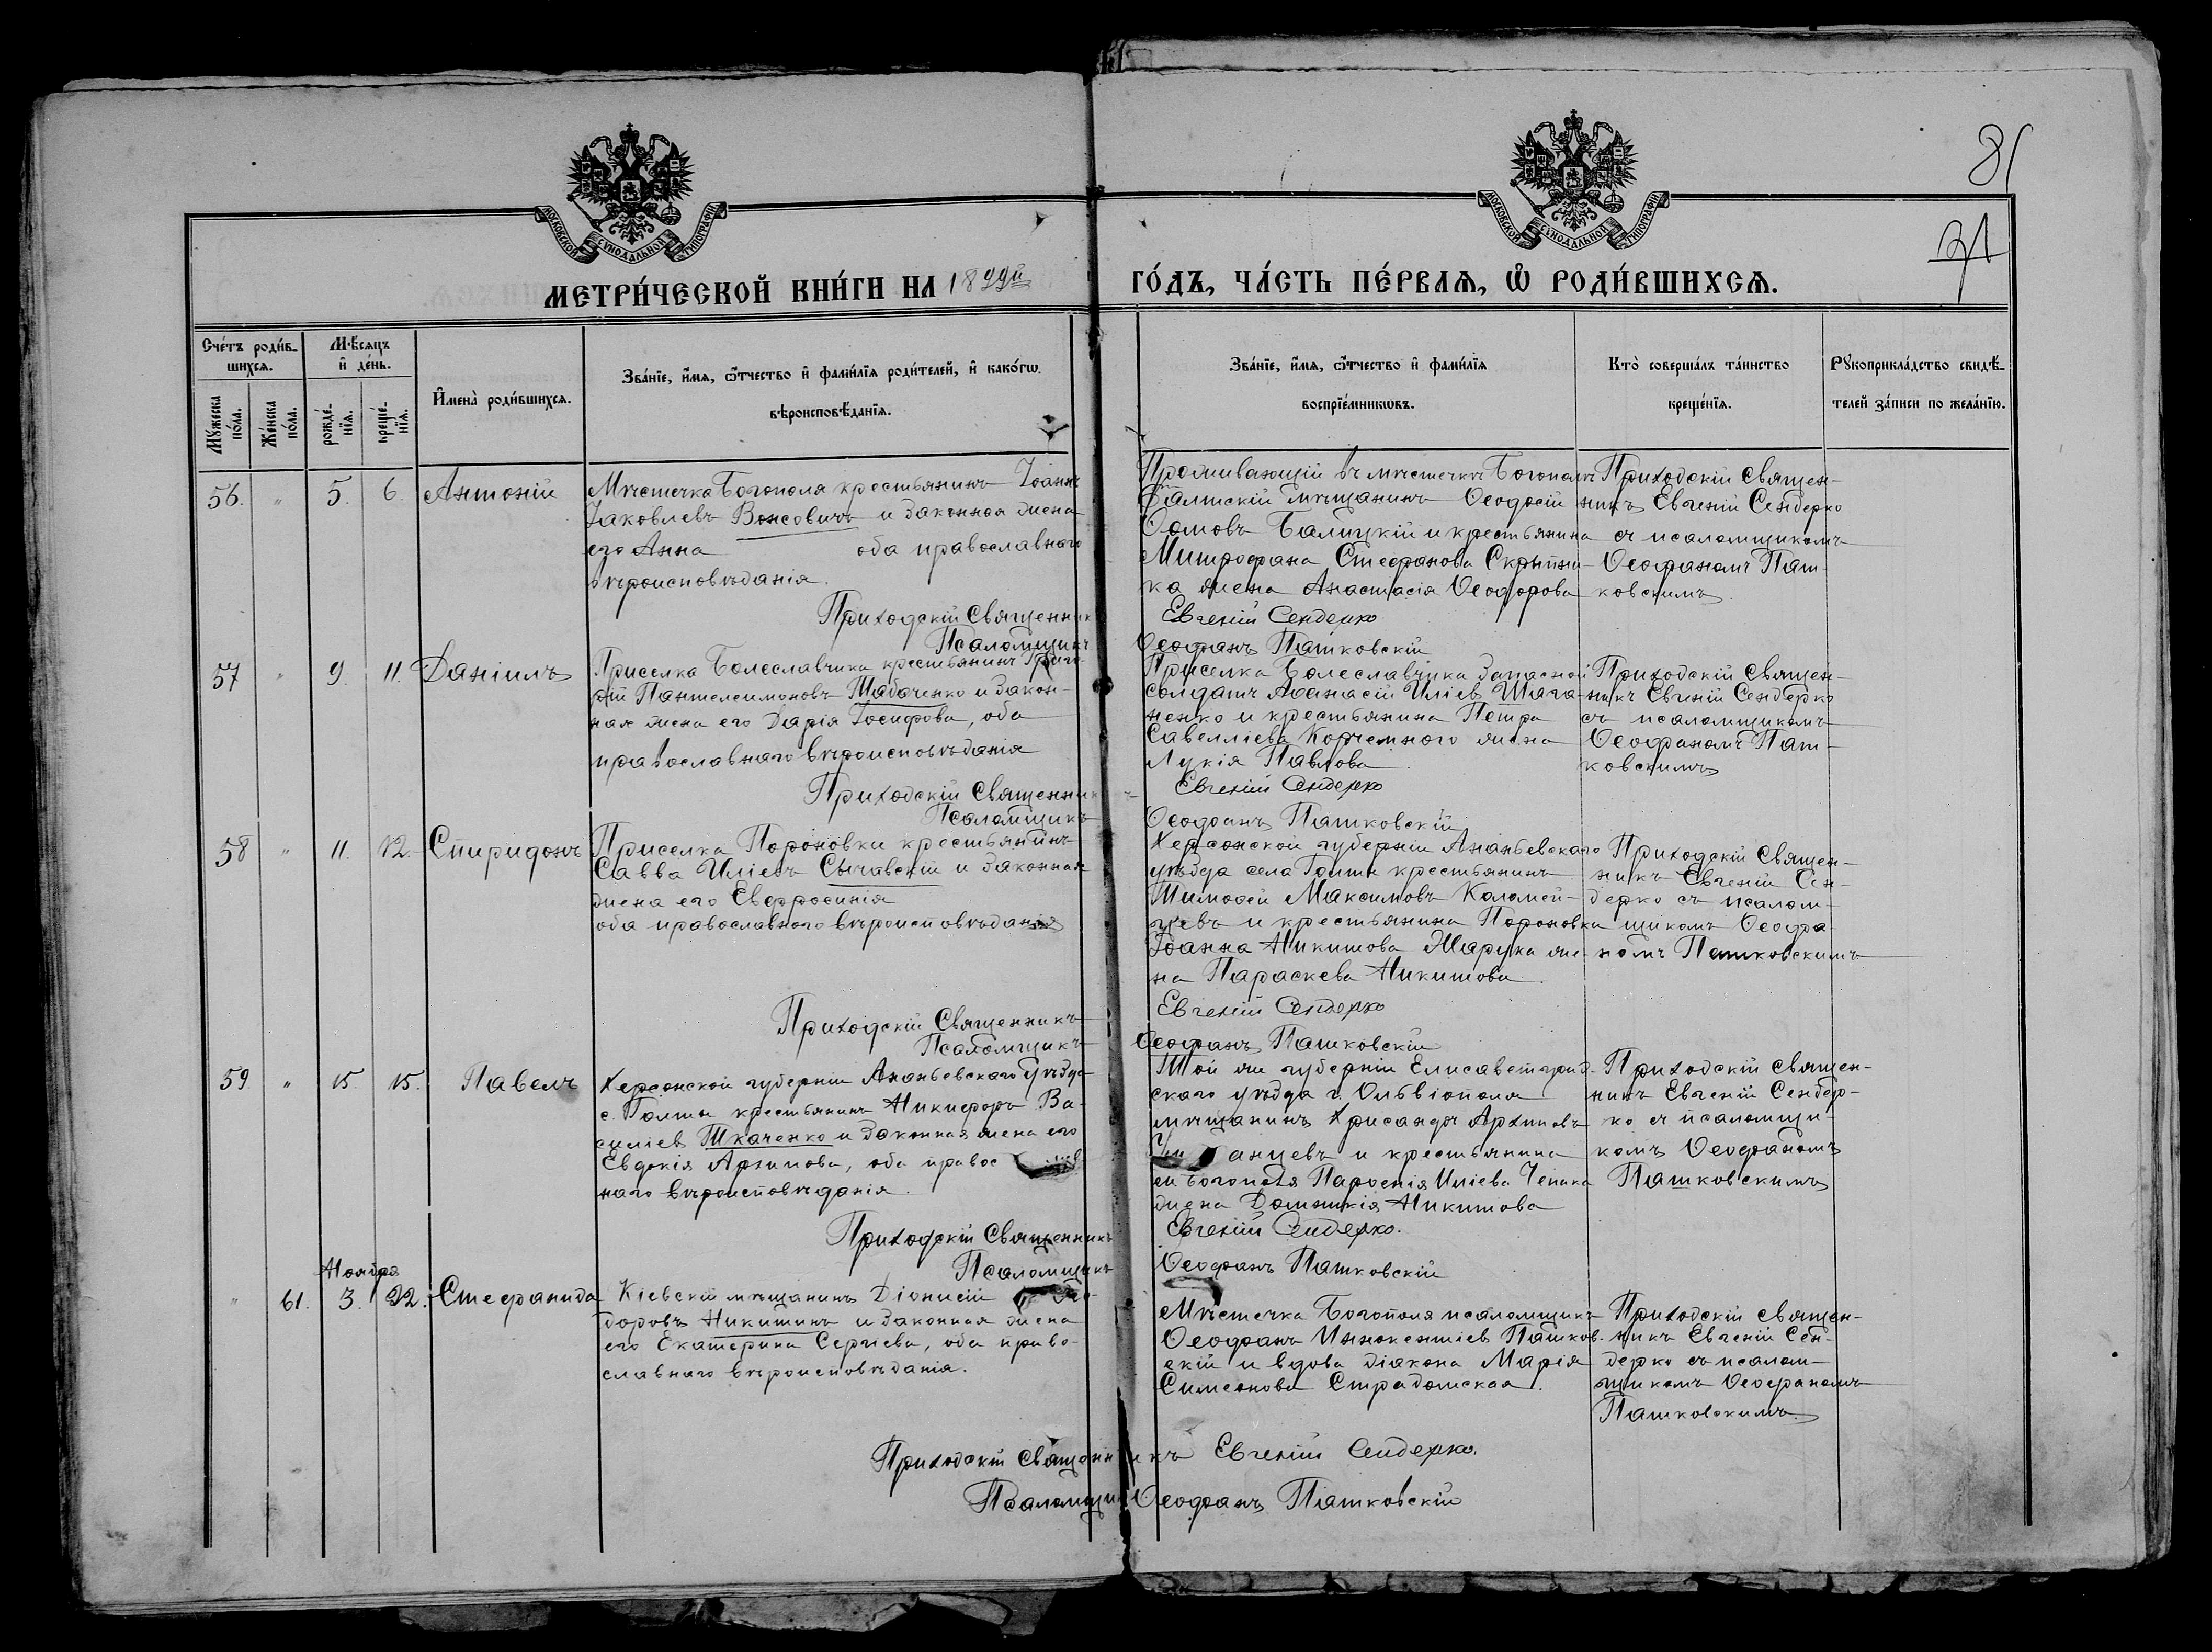 81
71
МОСКОВСКОЙ СѴНОДАЛЬНОЙ ТИПОГРАФІИ
МОСКОВСКОЙ СѴНОДАЛЬНОЙ ТИПОГРАФІИ
МЕТРИ́ЧЕСКОЙ КНИ́ГИ НА 1899й ГО́ДЪ, ЧА́СТЬ ПЕ́РВАѦ, Ѡ҆ РОДИ́ВШИХСѦ.
Сче́тъ роди́в-
шихсѧ.
Мѣ́сѧцъ
и҆ де́нь.
Му́жеска
по́ла.
Же́нска
по́ла.
рожде́-
нїѧ.
креще́-
нїѧ.
И҆мена̀ роди́вшихсѧ.
Зва́нїе, и҆́мѧ, ѻ҆́тчество и҆ фами́лїѧ роди́телей, и҆ како́гѡ
вѣроисповѣ́данїѧ.
Зва́нїе, и҆́мѧ, ѻ҆́тчество и҆ фами́лїѧ
воспрїе́мникѡвъ.
Кто̀ соверша́лъ та́инство
креще́нїѧ.
Рꙋкоприкла́дство свидѣ́-
телей за́писи по жела́нїю.
56. " 5. 6. Антоній
Мѣстечка Богополя крестьянинъ Іоаннъ
Іаковлевъ Вонсовичъ и законная жена
его Анна оба православнаго
вѣроисповѣданія.
Проживающій въ мѣстечкѣ Богополѣ
Балтскій мѣщанинъ Ѳеодосій
Ѳомовъ Балицкій и крестьянина
Митрофана Стефанова Скрыпни-
ка жена Анастасія Ѳеодорова
Приходскій Священ-
никъ Евгеній Сендерко
съ псаломщикомъ
Ѳеофаномъ Паш-
ковскимъ.
Приходскій Священникъ Евгеній Сендерко
Псаломщикъ Ѳеофанъ Пашковскій
57 " 9. 11. Даніилъ
Приселка Болеславчика крестьянинъ Григо-
рій Пантелеимоновъ Шабаченко и закон-
ная жена его Дарія Іосифова, оба
православнаго вѣроисповѣданія
Приселка Болеславчика запасной
солдатъ Аѳанасій Иліевъ Шага-
ненко и крестьянина Петра
Савелліева Корчемного жена
Лукія Павлова
Приходскій Священ-
никъ Евгеній Сендерко
съ псаломщикомъ
Ѳеофаномъ Паш-
ковскимъ
Приходскій Священникъ Евгеній Сендерко
Псаломщикъ Ѳеофанъ Пашковскій
58 " 11. 12. Спиридонъ
Приселка Пороновки крестьянинъ
Савва Иліевъ Сычавскій и законная
жена его Евфросинія
оба православного вѣроисповѣданія
Херсонской губерніи Ананьевскаго
уѣзда села Голты крестьянинъ
Тимоѳей Максимовъ Коломей-
цевъ и крестьянина Пороновки
Іоанна Никитова Жарука же-
на Параскева Никитова
Приходскій Священ-
никъ Евгеній Сен-
дерко съ псалом-
щикомъ Ѳеофа-
номъ Пашковскимъ
Приходскій Священникъ Евгеній Сендерко
Псаломщикъ Ѳеофанъ Пашковскій
59. " 15. 15. Павелъ
Херсонской губерніи Ананьевскаго уѣзда
с. Голты крестьянинъ Никифоръ Ва-
силіевъ Ткаченко и законная жена его
Евдокія Архипова, оба правос
наго вѣроисповѣданія.
Той же губерніи Елисаветград-
скаго уѣзда г. Ольвіополя
мѣщанинъ Хрисанфъ Архиповъ
анцевъ и крестьянина
м. Богополя Парѳенія Иліева Чепика
жена Домникія Никитова
Приходскій Священ-
никъ Евгеній Сендер-
ко съ псаломщи-
комъ Ѳеофаномъ
Пашковскимъ
Приходскій Священникъ Евгеній Сендерко.
Псаломщикъ Ѳеофанъ Пашковскій
Ноября
" 61. 3. 22. Стефанида
Кіевскій мѣщанинъ Діонисій Ѳео-
доровъ Никитинъ и законная жена
его Екатерина Сергіева, оба право-
славнаго вѣроисповѣданія.
Мѣстечка Богополя псаломщикъ
Ѳеофанъ Иннокентіевъ Пашков-
скій и вдова діакона Марія
Симеонова Страдомская.
Приходскій Священ-
никъ Евгеній Сен-
дерко съ псалом-
щикомъ Ѳеофаномъ
Пашковскимъ.
Приходскій Священникъ Евгеній Сендерко.
Псаломщикъ Ѳеофанъ Пашковскій